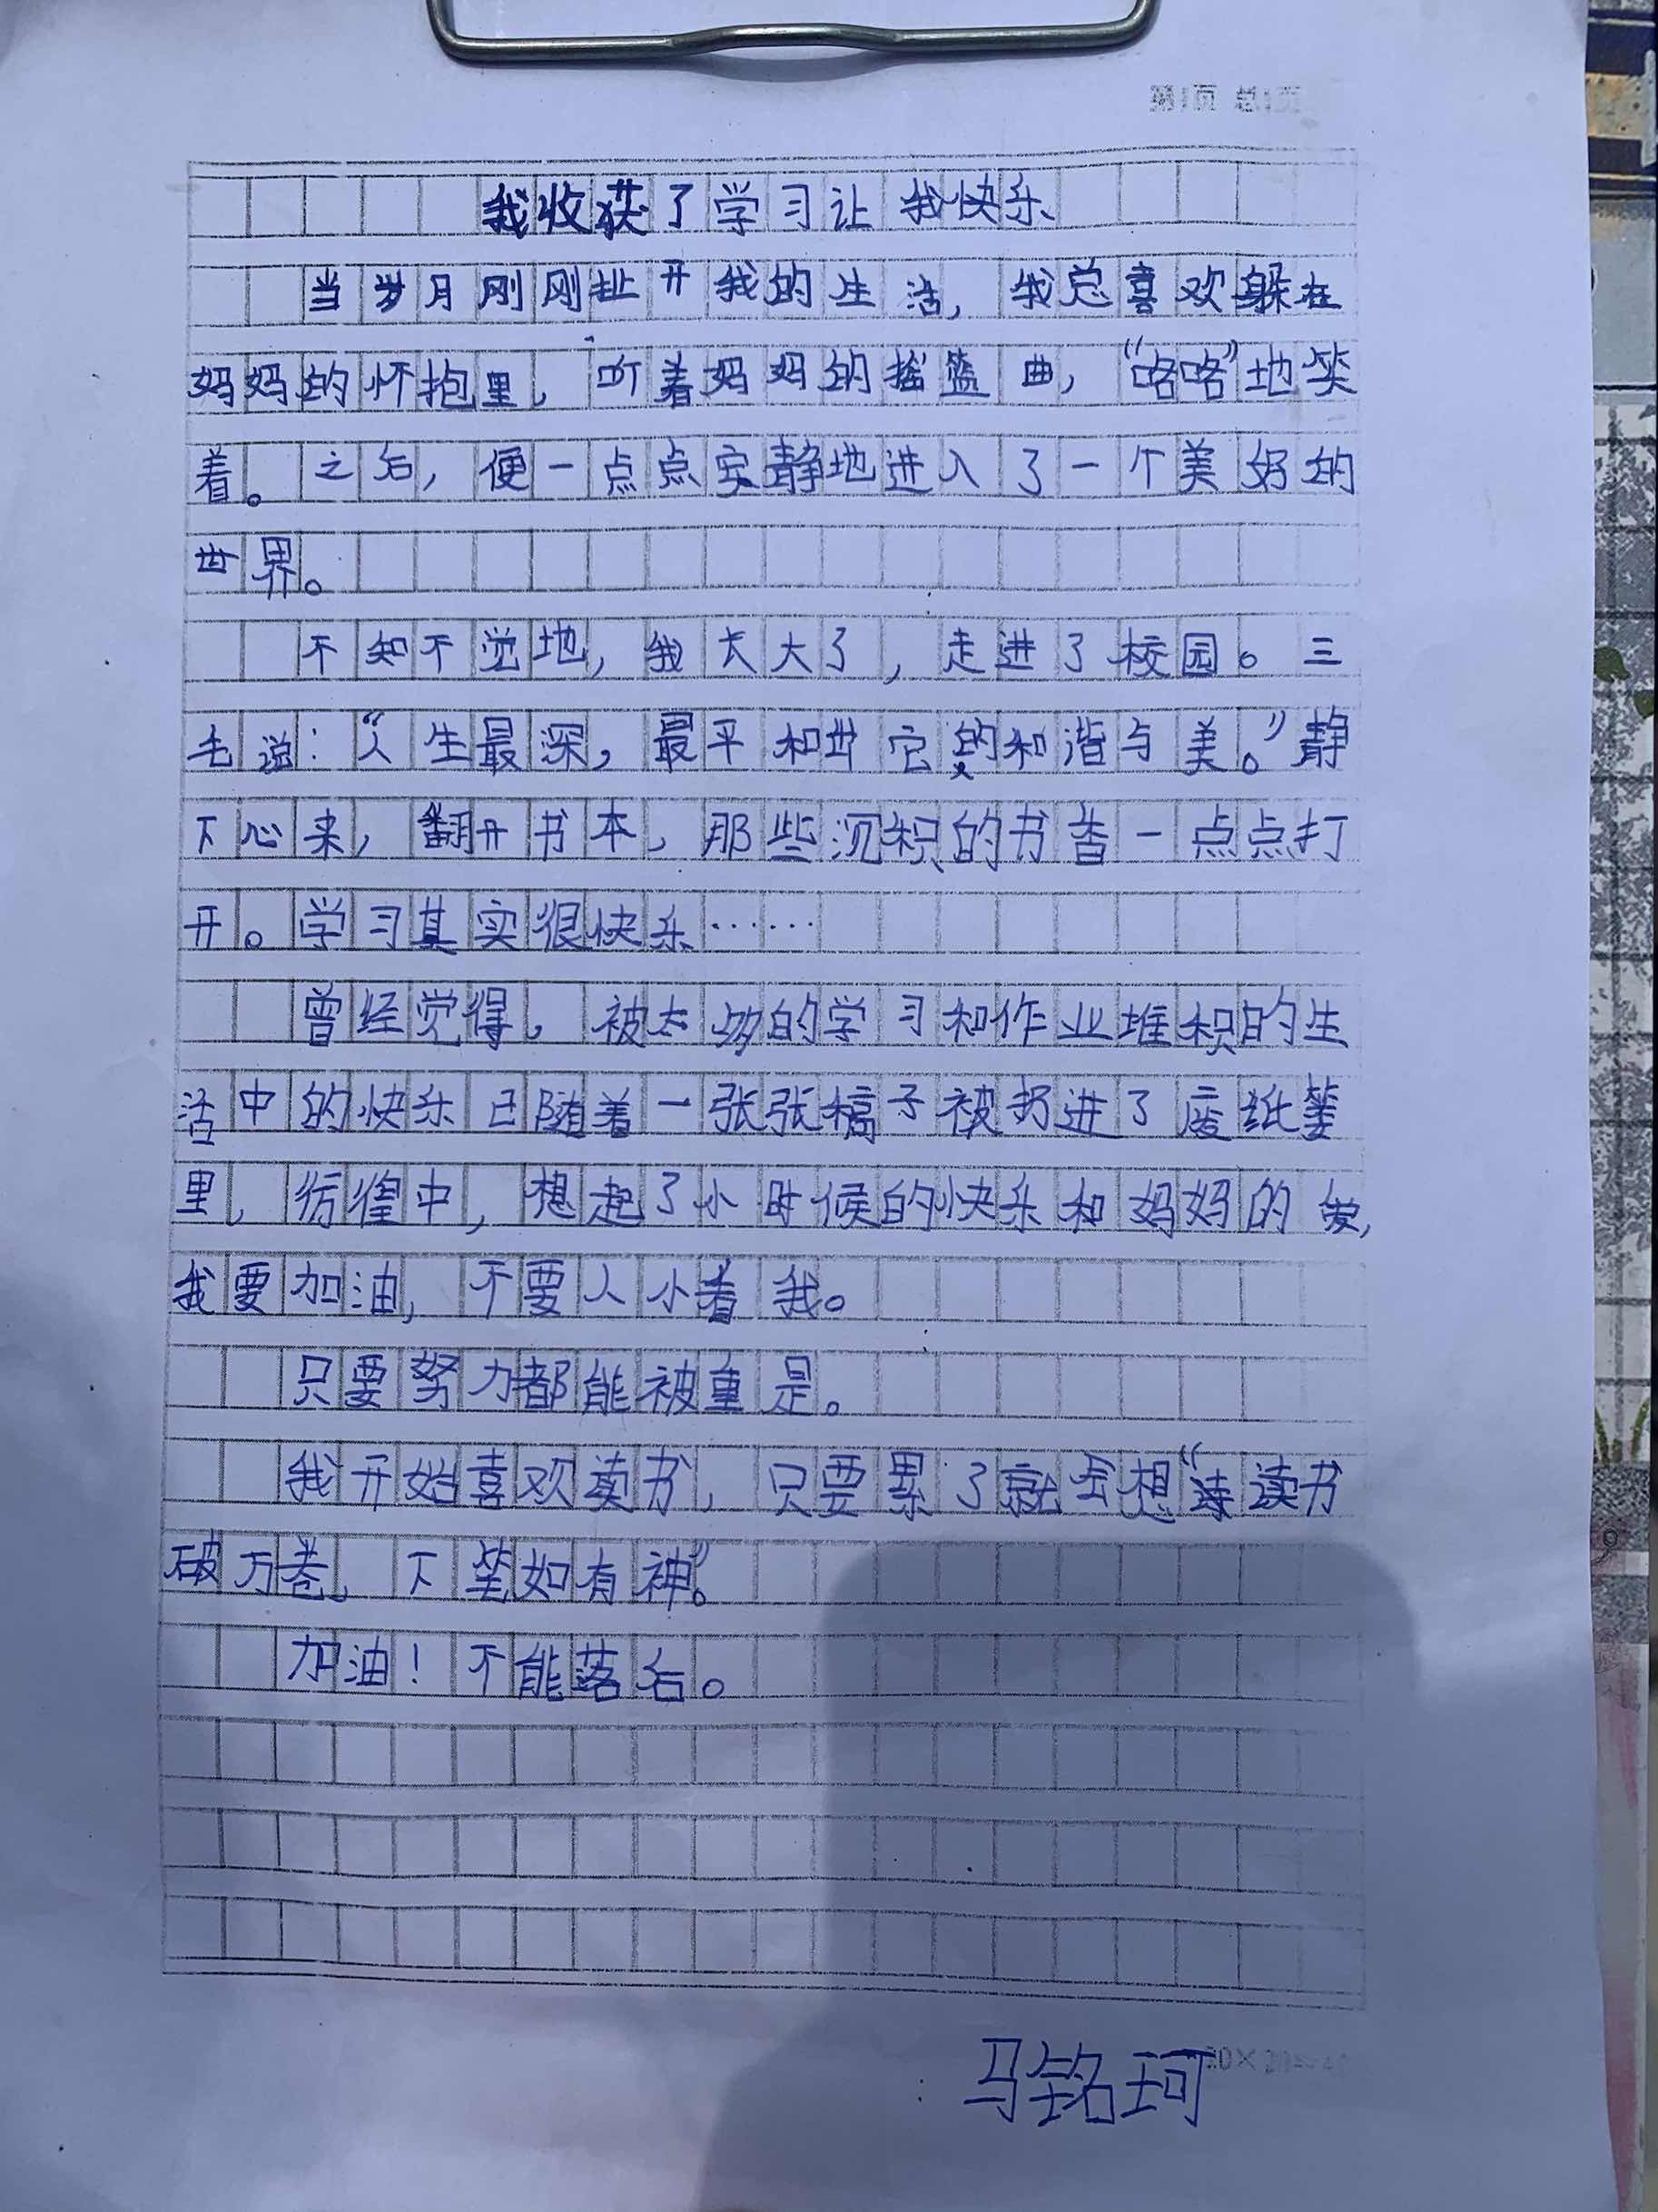 第1页 总1页
我收获了学习让我快乐
当岁月刚刚扯开我的生活，我总喜欢躲在
妈妈的怀抱里，听着妈妈的摇篮曲，“咯咯”地笑
着。之后，便一点点安静地进入了一个美好的
世界。
不知不觉地，我长大了，走进了校园。三
毛说：“人生最深，最平和 它的和谐与美。”静
下心来，翻开书本，那些沉积的书香一点点打
开。学习其实很快乐……
曾经觉得，被太多的学习和作业堆积的生
活中的快乐已随着一张张稿子被扔进了废纸篓
里，彷徨中，想起了小时候的快乐和妈妈的爱，
我要加油，不要人小看我。
只要努力都能被重是。
我开始喜欢读书，只要累了就会想“读书
破万卷，下笔如有神”。
加油！不能落后。
马铭珂